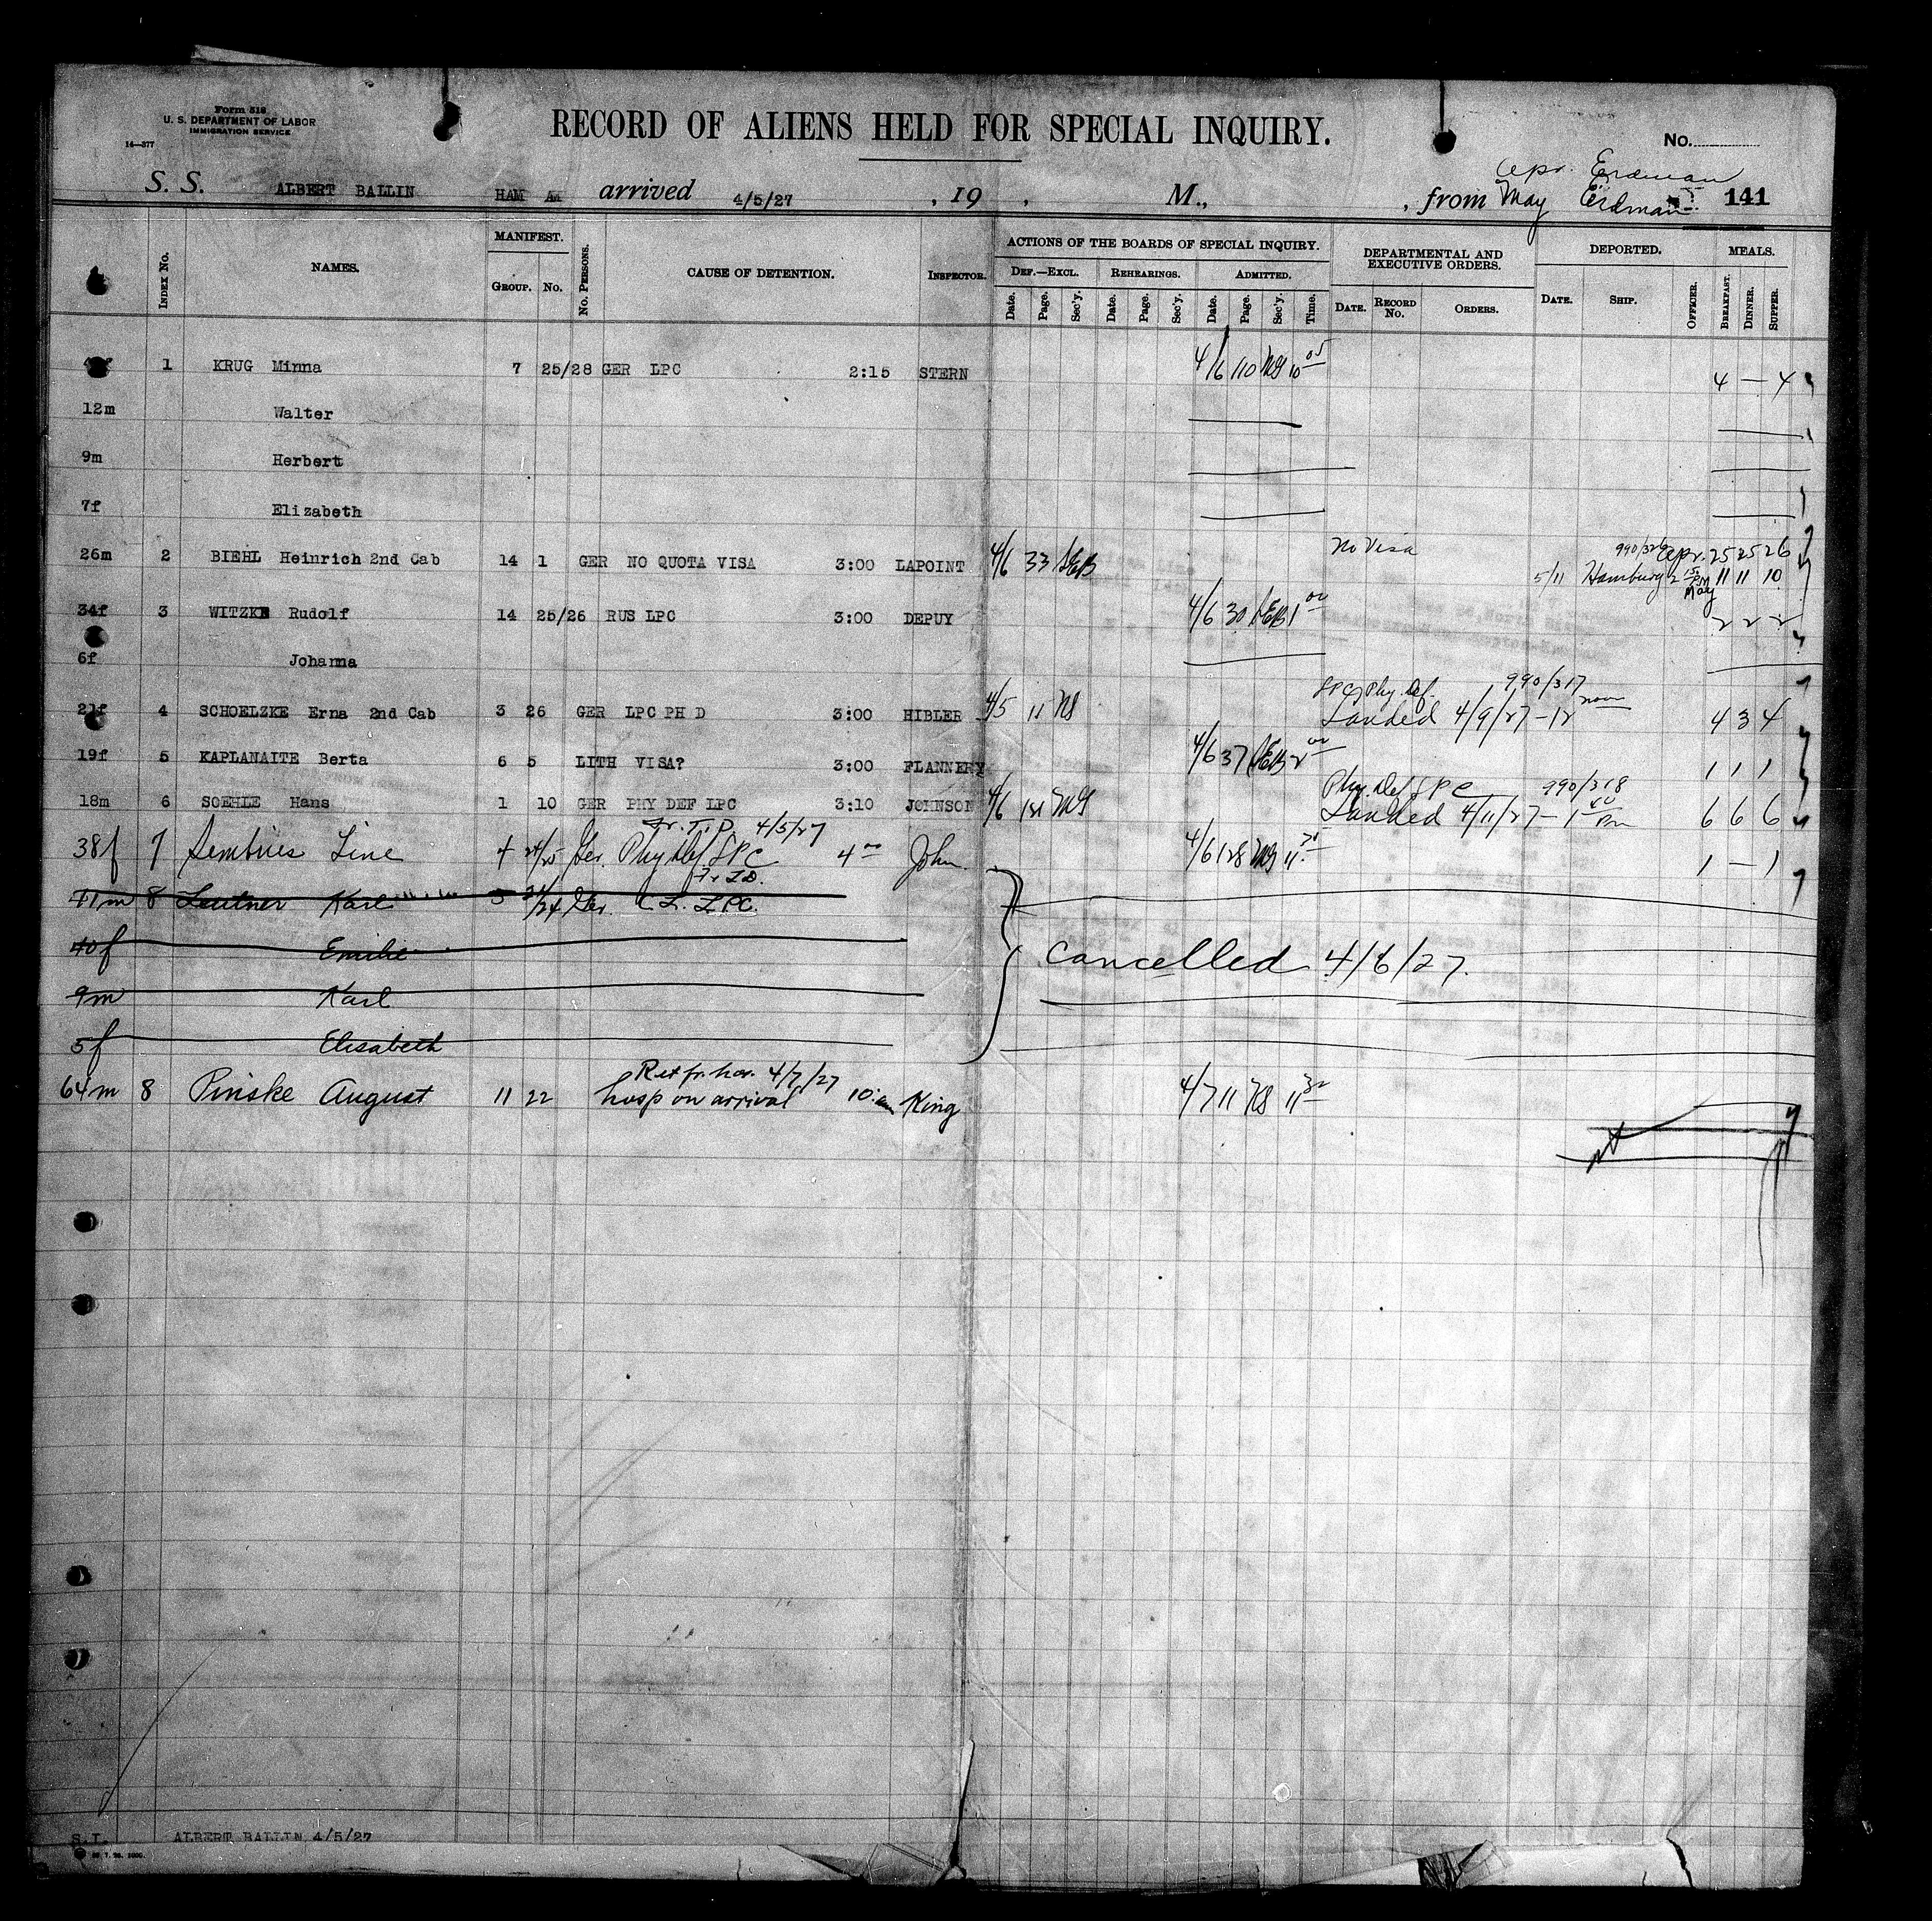 Form 518
U. S. DEPARTMENT OF LABOR
IMMIGRATION SERVICE
14—377
RECORD OF ALIENS HELD FOR SPECIAL INQUIRY.
No.
Apr. Erdman
S. S. ALBERT BALLIN HAM AM arrived 4/5/27 , 19 , M., , from May Erdman 141
INDEX No. NAMES. MANIFEST. GROUP. No. No. PERSONS. CAUSE OF DETENTION. INSPECTOR. ACTIONS OF THE BOARDS OF SPECIAL INQUIRY. DEPARTMENTAL AND EXECUTIVE ORDERS. DEPORTED. MEALS.
DEF.—EXCL. REHEARINGS. ADMITTED.
Date. Page. Sec'y. Date. Page. Sec'y. Date. Page. Sec'y. Time. DATE. RECORD No. ORDERS. DATE. SHIP. OFFICER. BREAKFAST. DINNER. SUPPER.
1 KRUG Minna 7 25/28 GER LPC 2:15 STERN 4/6 110 MG 10 05 4 — 4
12m Walter
9m Herbert
7f Elizabeth
26m 2 BIEHL Heinrich 2nd Cab 14 1 GER NO QUOTA VISA 3:00 LAPOINT 4/6 33 No Visa 990/326 Apr. 25 25 26
5/11 Hamburg May 11 11 10
34f 3 WITZKE Rudolf 14 25/26 RUS LPC 3:00 DEPUY 4/6 30 1 00 2 2 2
6f Johanna
21f 4 SCHOELZKE Erna 2nd Cab 3 26 GER LPC PH D 3:00 HIBLER 4/5 11 LPC Phy. Def. 990/317
Landed 4/9/27 - 12 noon 4 3 4
19f 5 KAPLANAITE Berta 6 5 LITH VISA? 3:00 FLANNERY 4/6 37 2 00 1 1 1
18m 6 SOEHLE Hans 1 10 GER PHY DEF LPC 3:10 JOHNSON 4/6 MG Phy. Def LPC 990/318
Landed 4/11/27 - 1 40 Pm 6 6 6
4/5/27
38f 7 Sembries Line 4 24/25 Ger. Phy Def. LPC 4 00 John 4/6 128 MG 11 1 — 1
41m 8 Leutner Karl Ger. LPC.
40f Emilie Cancelled 4/6/27.
9m Karl
5f Elisabeth
Ret fr. hos. 4/7/27
64m 8 Pinske August 11 22 hosp on arrival 10 am King 4/7 11 11 30
S.I. ALBERT BALLIN 4/5/27